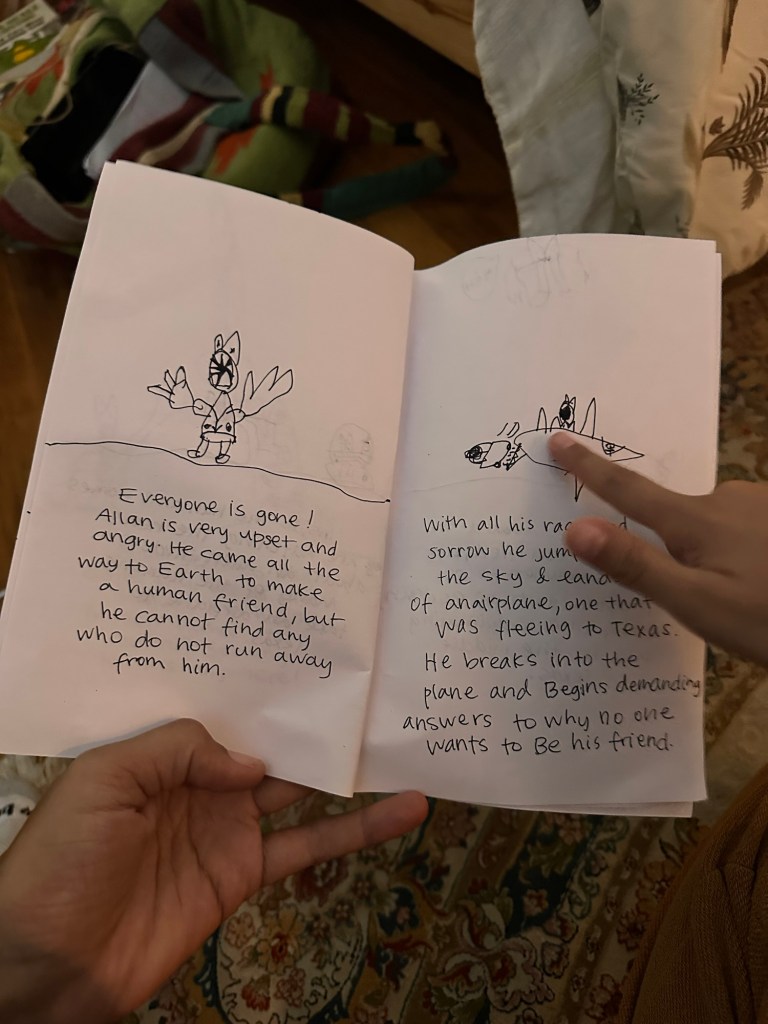 Everyone is gone!
Allan is very upset and
angry. He came all the
way to Earth to make
a human friend, but
he cannot find any
who do not run away
from him.
With all his
sorrow he
the sky &
of anairplane, one that
was fleeing to Texas.
He breaks into the
plane and Begins demanding
answers to why no one
wants to Be his friend.